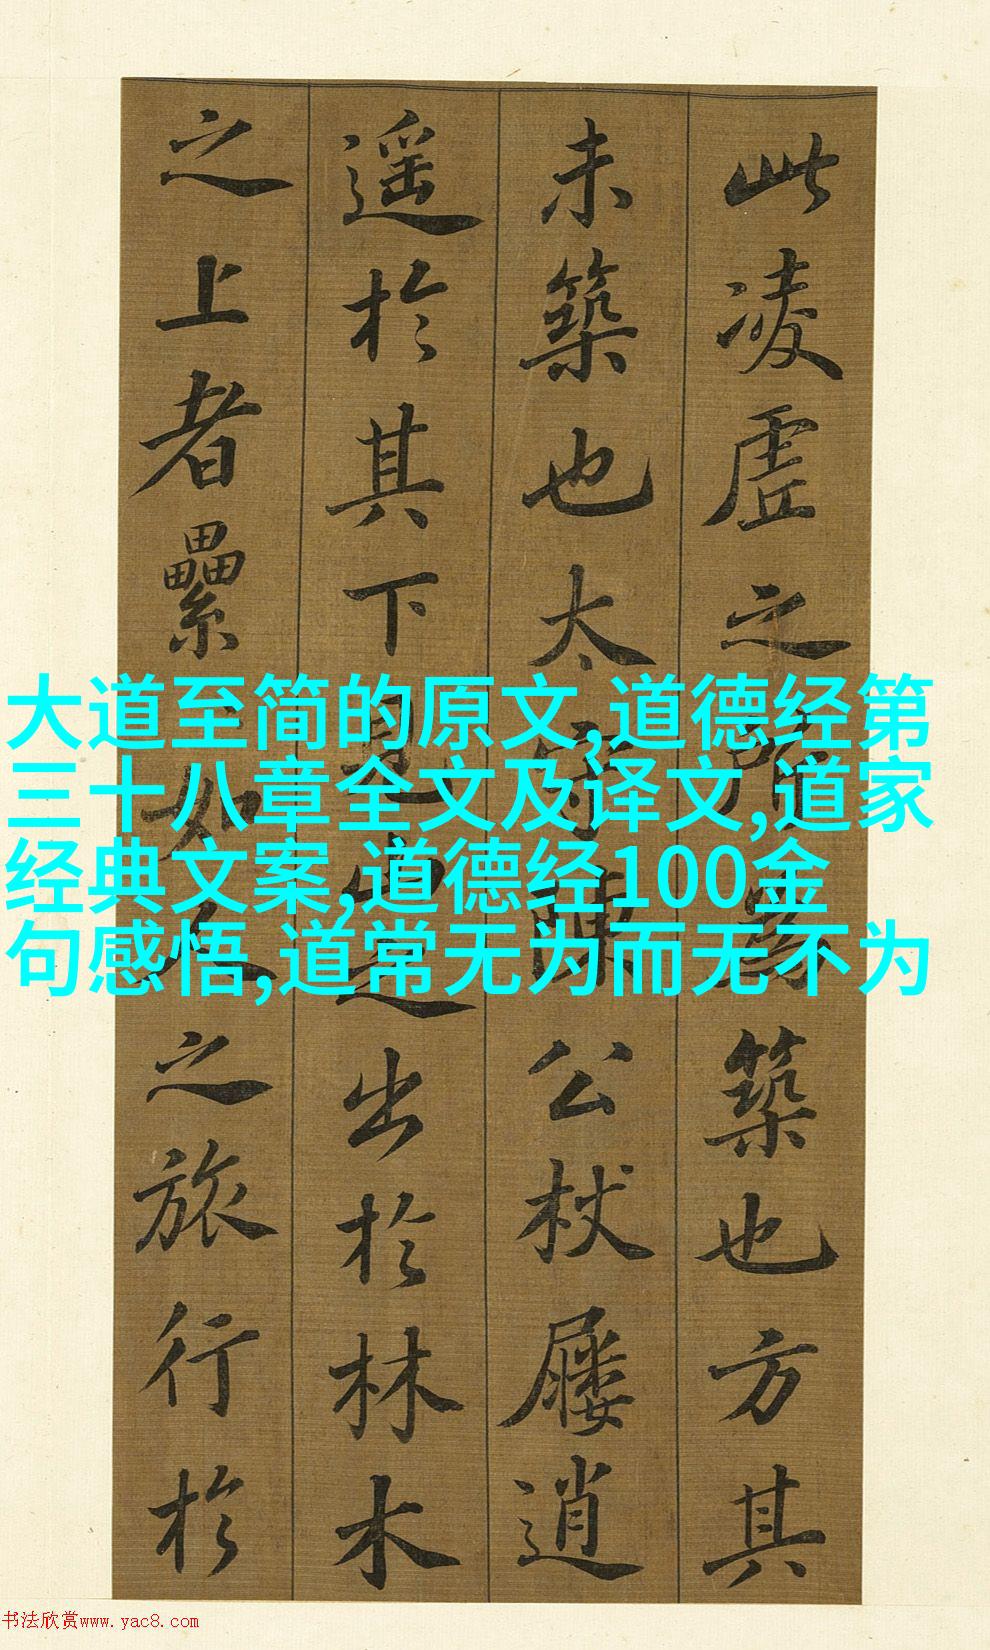 此凌虛之所為築也方其
未築也太守陳公杖屨逍
遥於其下見山之出於林木
之上者纍〻如人之旅行於
大道至简的原文,道德经第
三十八章全文及译文,道家
经典文案,道德经100金
句感悟,道常无为而无不为
书法欣赏www.yac8.com